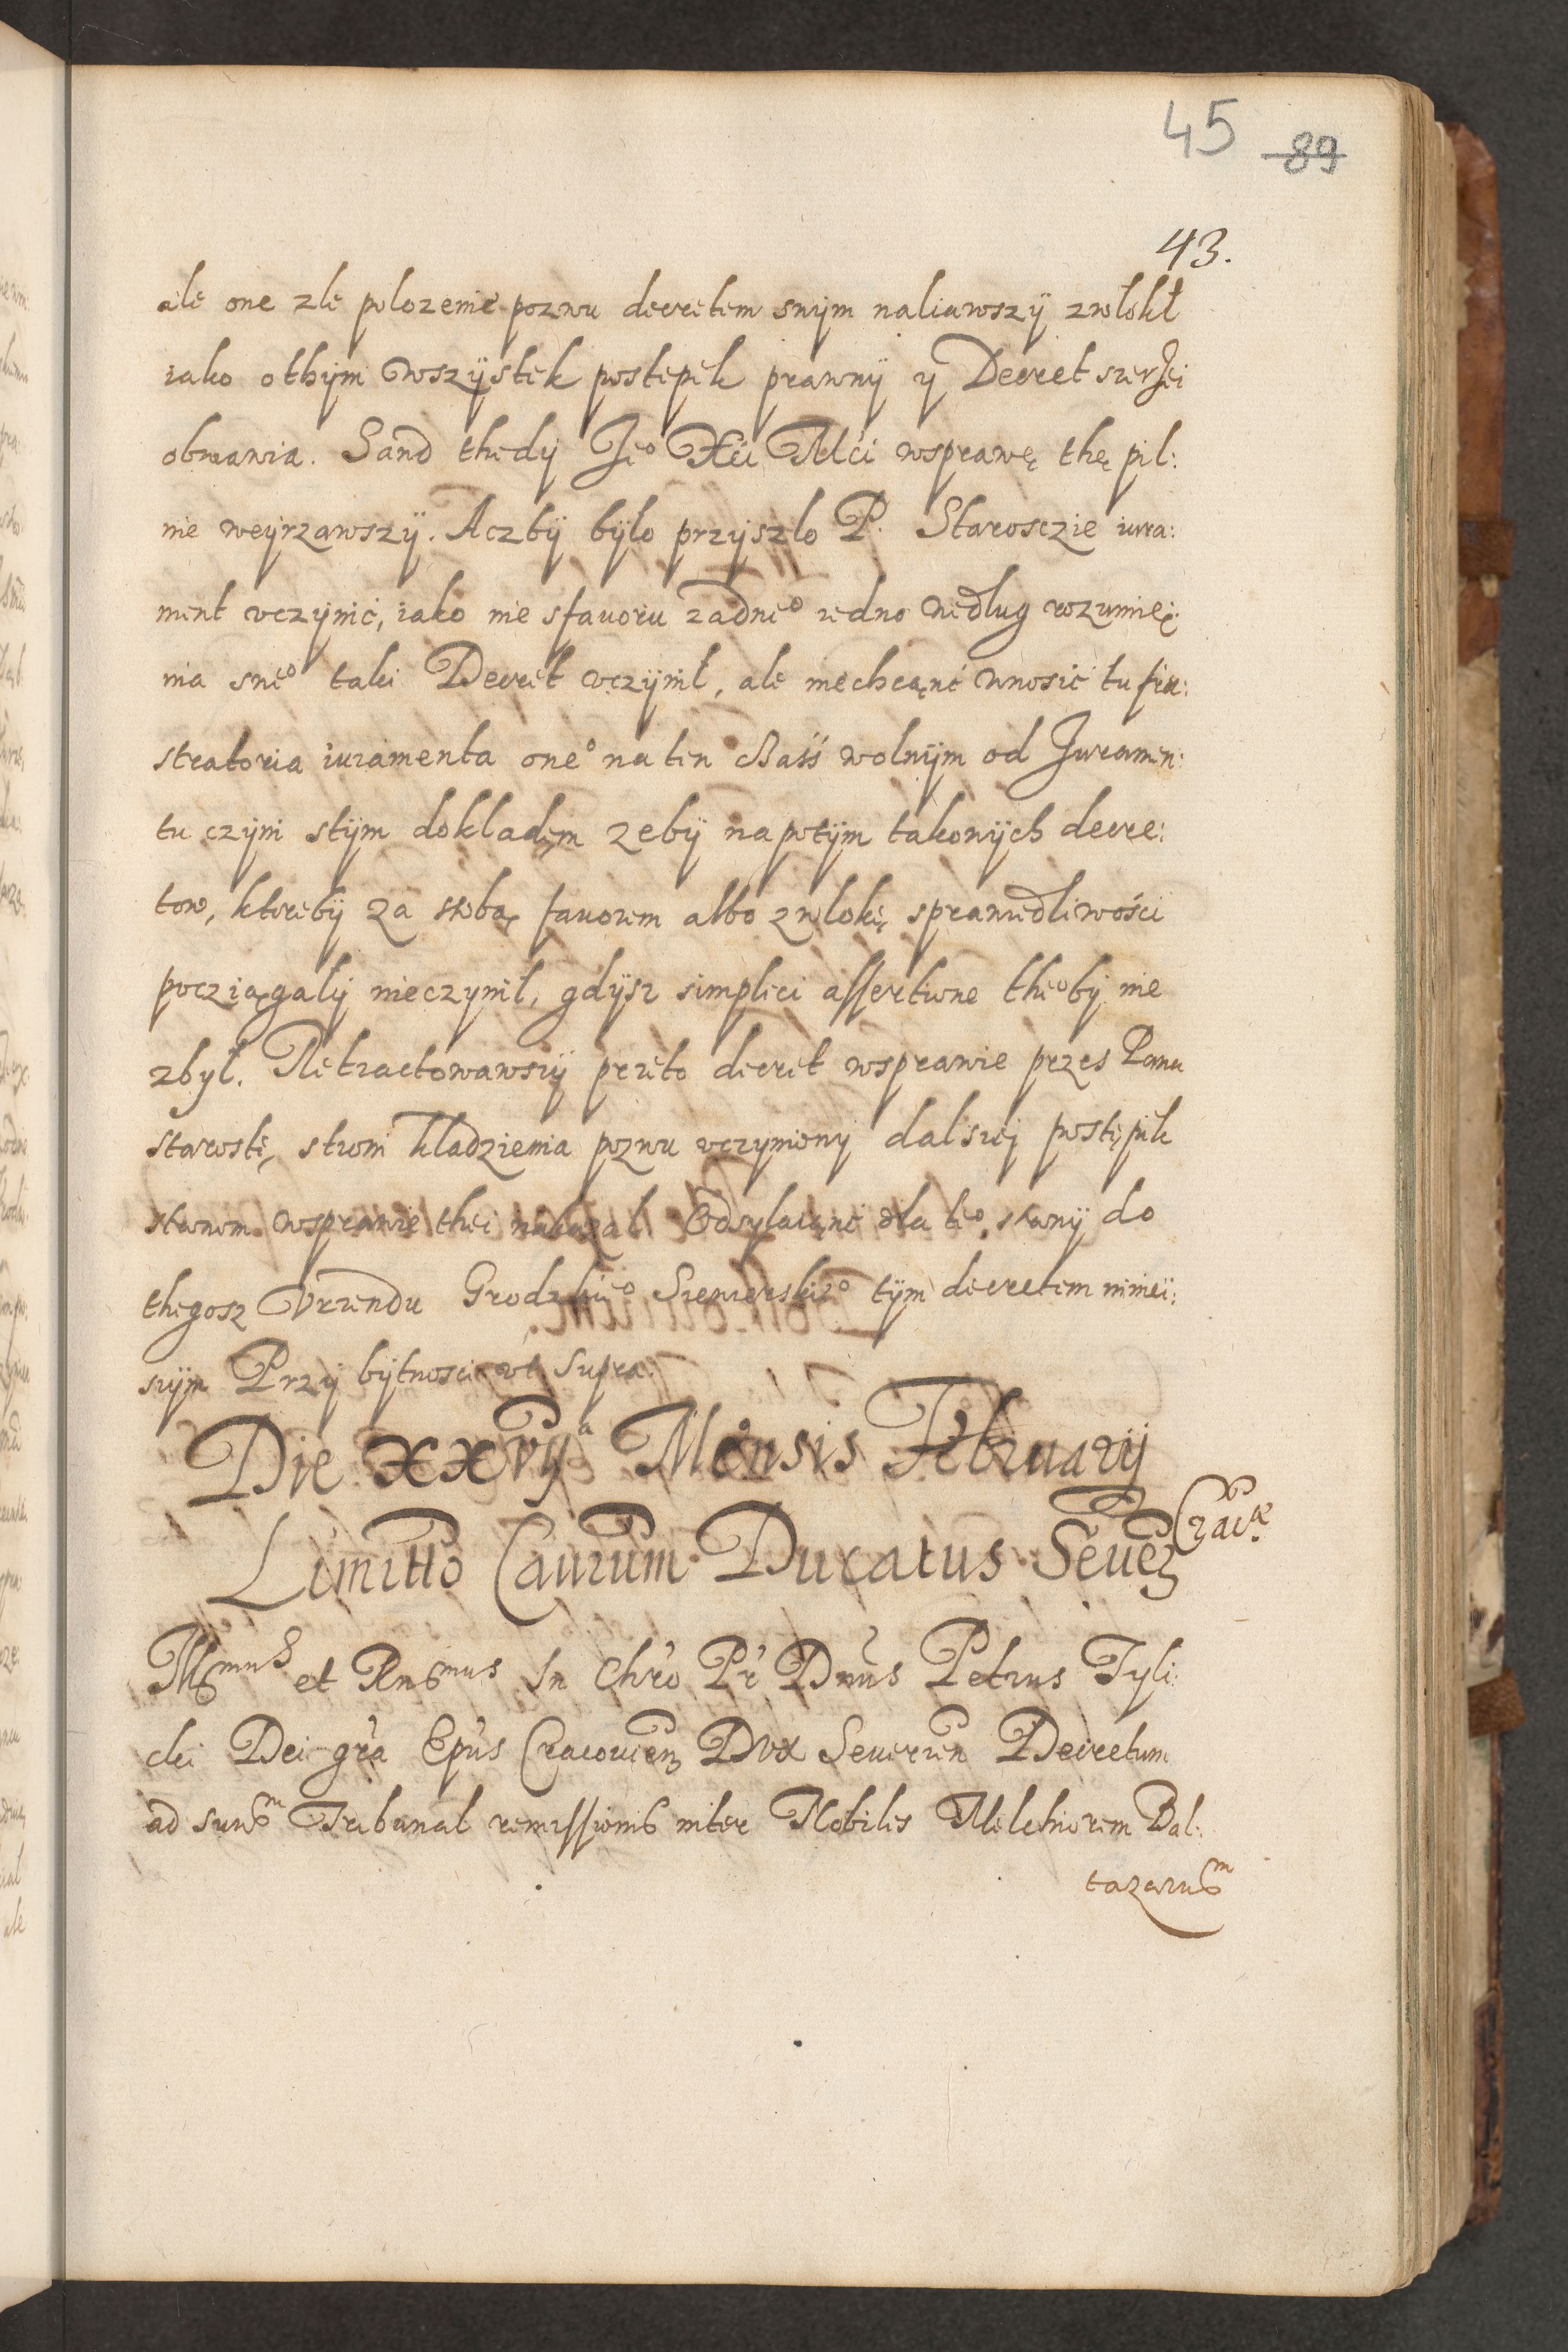 45 89
43.
ale one zle polozenie poznu decretem snym naliawszÿ zwlokł
iako othÿm wszÿstek postepek prawnÿ ÿ Decret szerzei
obmawia. Sand thedÿ Je° Xii Mći wsprawę thę pil:
nie weÿrzawszÿ. Aczbÿ bÿło przÿszlo P. Starosczie iura:
ment vczÿnić, iako nie sfauoru zadne° iedno wedlug rozumieĩ:
nia sne° taki Decret vczÿnił, ale niechcąnć wnosić tu fru:
stratoria iuramenta one° na ten cżaśś wolnÿm od Juramen:
tu czÿni stÿm dokladem zebÿ napotÿm takowÿch decre:
tow, ktorebÿ za soba fauorem albo zwlokę sprawiedliwości
pocziągalÿ nieczynił, gdÿsz simplici assertione the°bÿ nie
zbÿł. Retractowawszÿ przeto decret wsprawie przes Pana
starostę, strom kladzienia poznu vczynionÿ dalszej postępek
stronom wsprawie thei nakazal Odsylaiąnć dla te° stronÿ do
thegosz Vrzendu Grodzkie° Siewierskie° tÿm decretem ninieÿ:
szÿm Przÿ bÿtnosci vt supra.
Die xxvÿª Mensis Februarÿ
Limitto Causarum Ducatus Seuer Craciae
Illmus et Rndmus In Chro Pr Dnus Petrus Tyli:
cki Dei gra Epus Cracouien Dux Seuerien Decretum
ad suum Tribunal remissionis inter Nobiles Melchiorem Bal:
tazarum